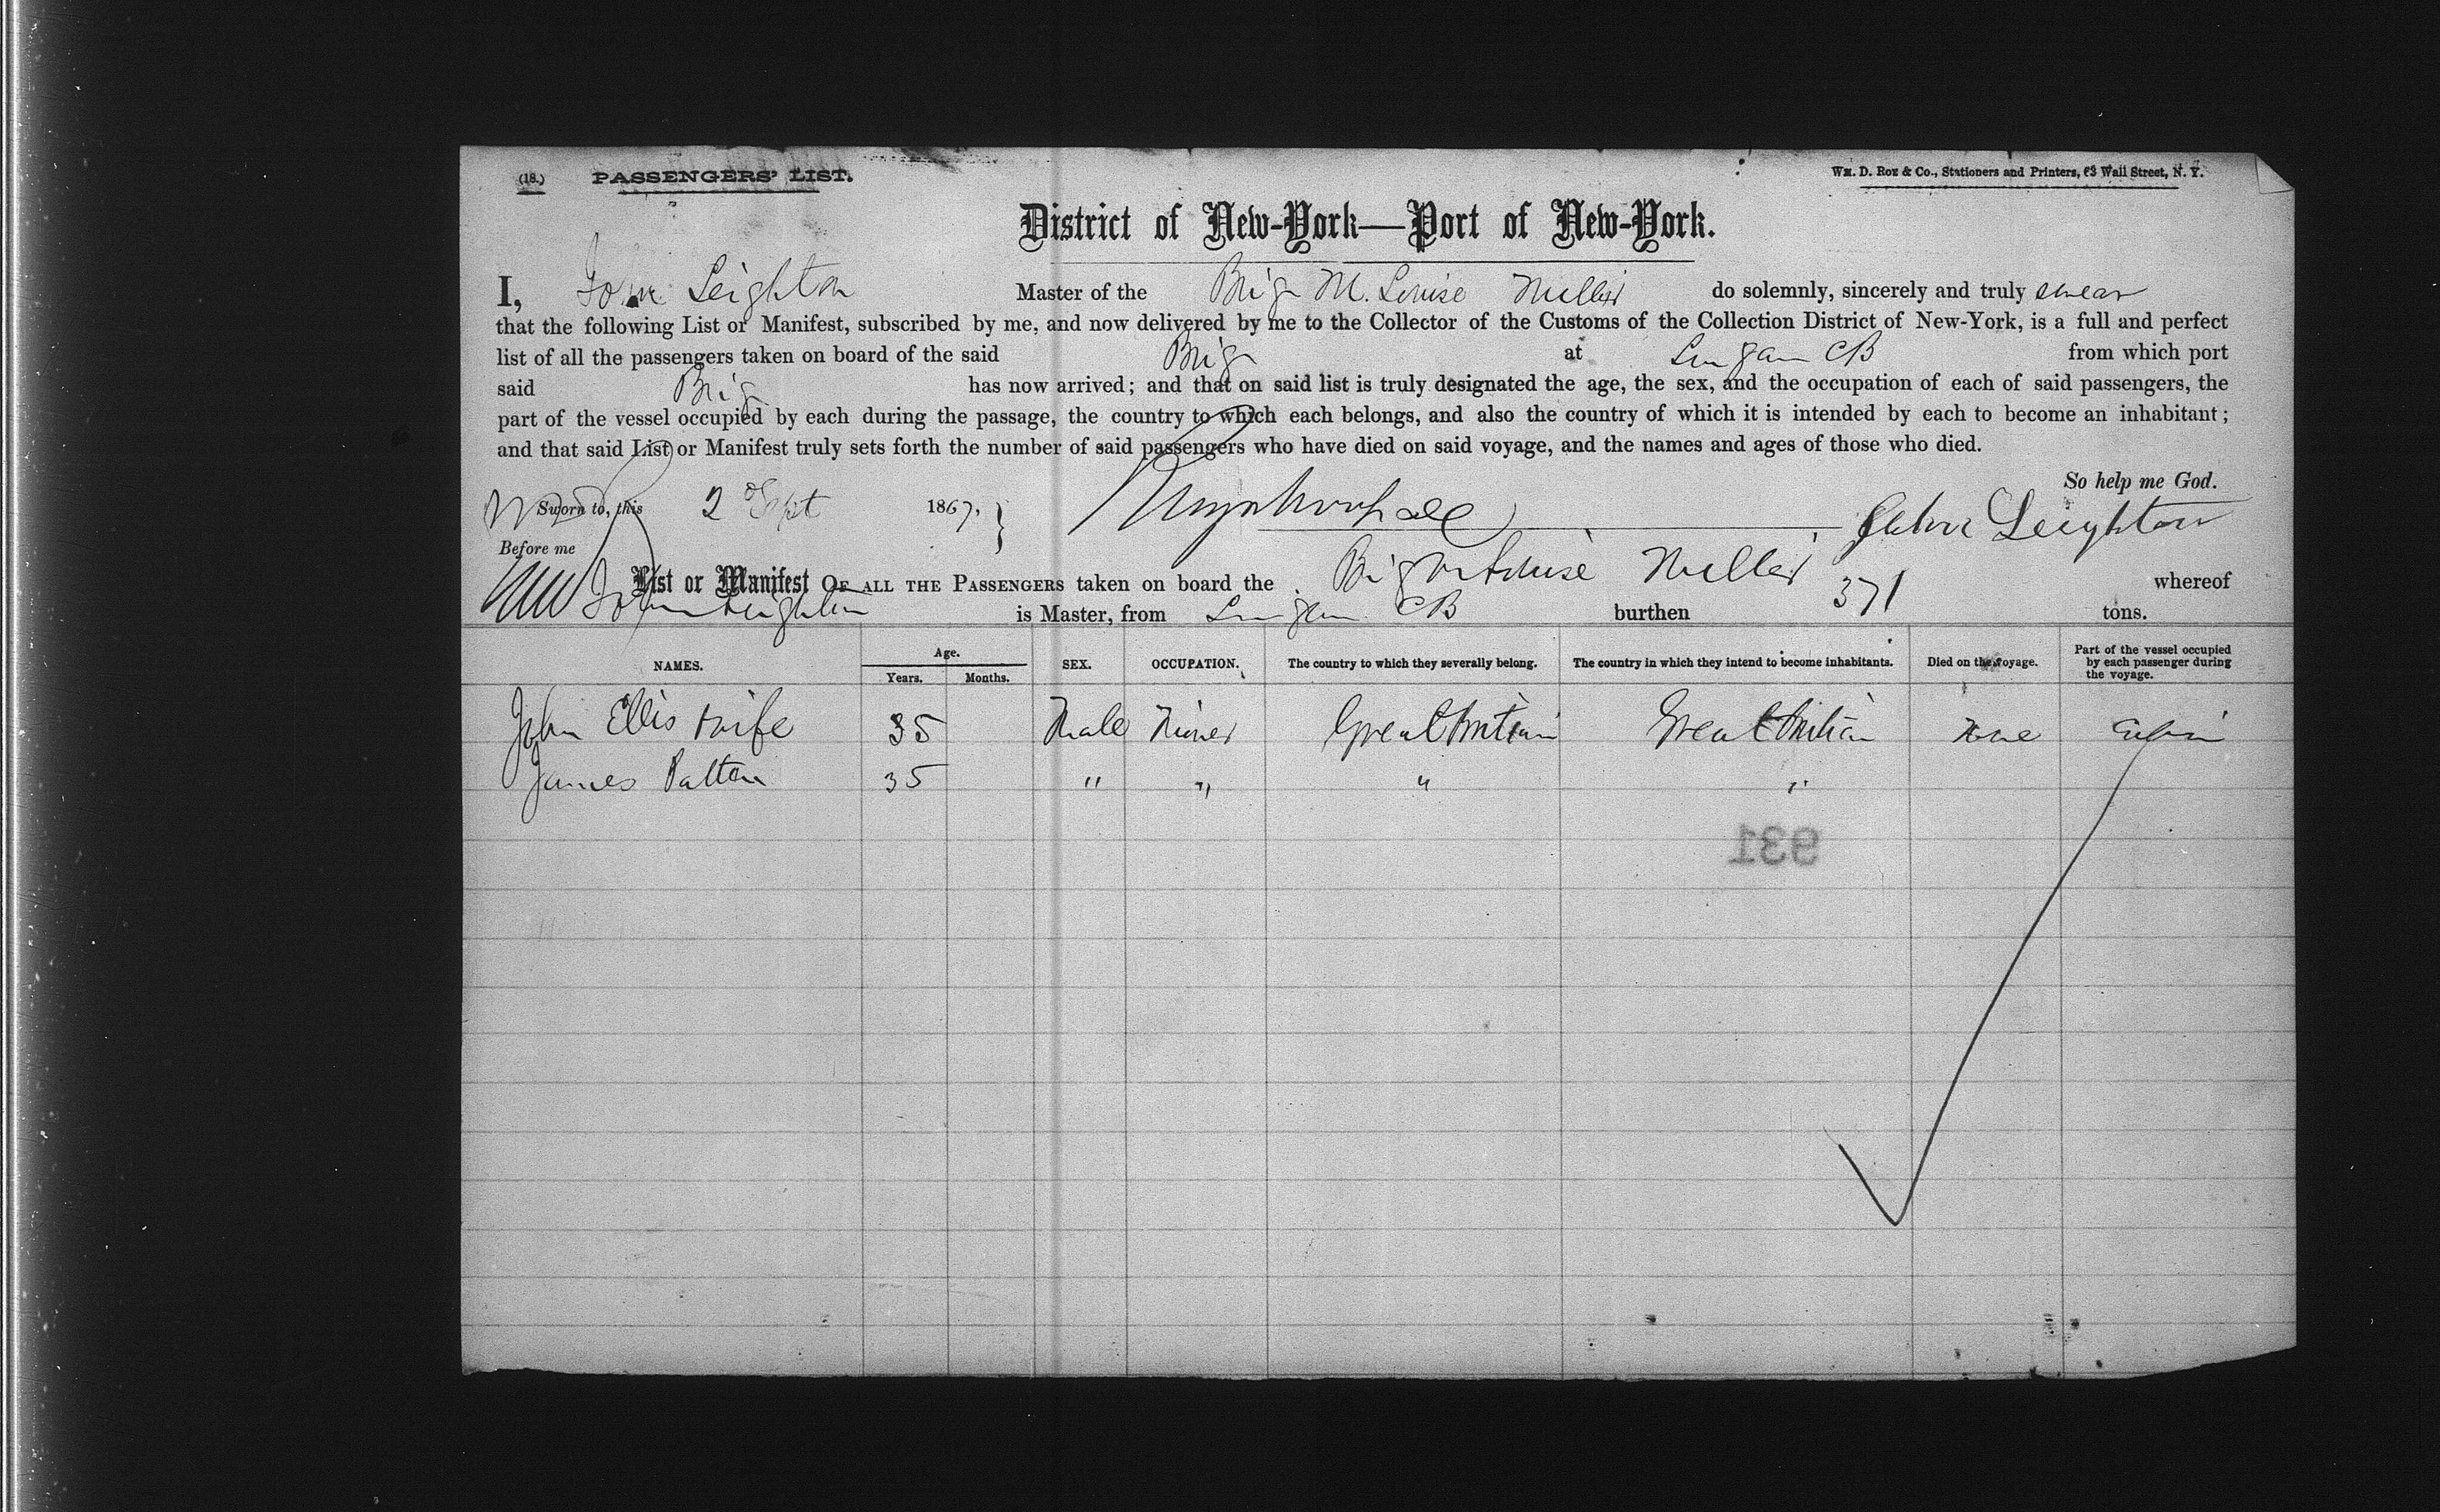 (18.) PASSENGERS' LIST. Wm. D. Roe & Co., Stationers and Printers, 63 Wall Street, N. Y.
District of New-York—Port of New-York.
I, John Leighton Master of the Brig M. Louise Miller do solemnly, sincerely and truly swear
that the following List or Manifest, subscribed by me, and now delivered by me to the Collector of the Customs of the Collection District of New-York, is a full and perfect
list of all the passengers taken on board of the said Brig at Lingan CB from which port
said Brig has now arrived; and that on said list is truly designated the age, the sex, and the occupation of each of said passengers, the
part of the vessel occupied by each during the passage, the country to which each belongs, and also the country of which it is intended by each to become an inhabitant;
and that said List or Manifest truly sets forth the number of said passengers who have died on said voyage, and the names and ages of those who died.
So help me God.
Sworn to, this 2 Sept 1867. John Leighton
Before me
List or Manifest OF ALL THE PASSENGERS taken on board the Brig M Louise Miller whereof
John Leighton is Master, from Lingan CB burthen 371 tons.
NAMES. Age. Years. Months. SEX. OCCUPATION. The country to which they severally belong. The country in which they intend to become inhabitants. Died on the voyage. Part of the vessel occupied by each passenger during the voyage.
John Ellis + wife 35 Male Miner Great Britain Great Britain None Cabin
James Patton 35 " " " "
931